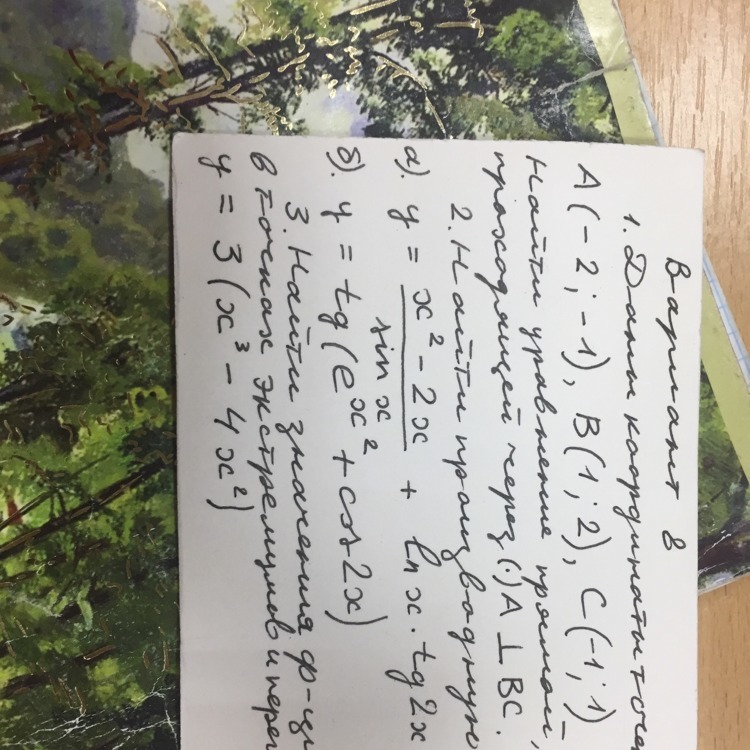 Вариант 8
1. Даны координаты точе
A(-2; -1), B(1; 2), C(-1; 1)
Найти уравнение прямой,
проходящей через (·)A ⊥ BC.
2. Найти производную
а). y = (x² - 2x) / sin x + ln x · tg 2x
б). y = tg(e^{x²} + cos 2x)
3. Найти значения ф-ци
в точках экстремумов и пере
y = 3(x³ - 4x²)